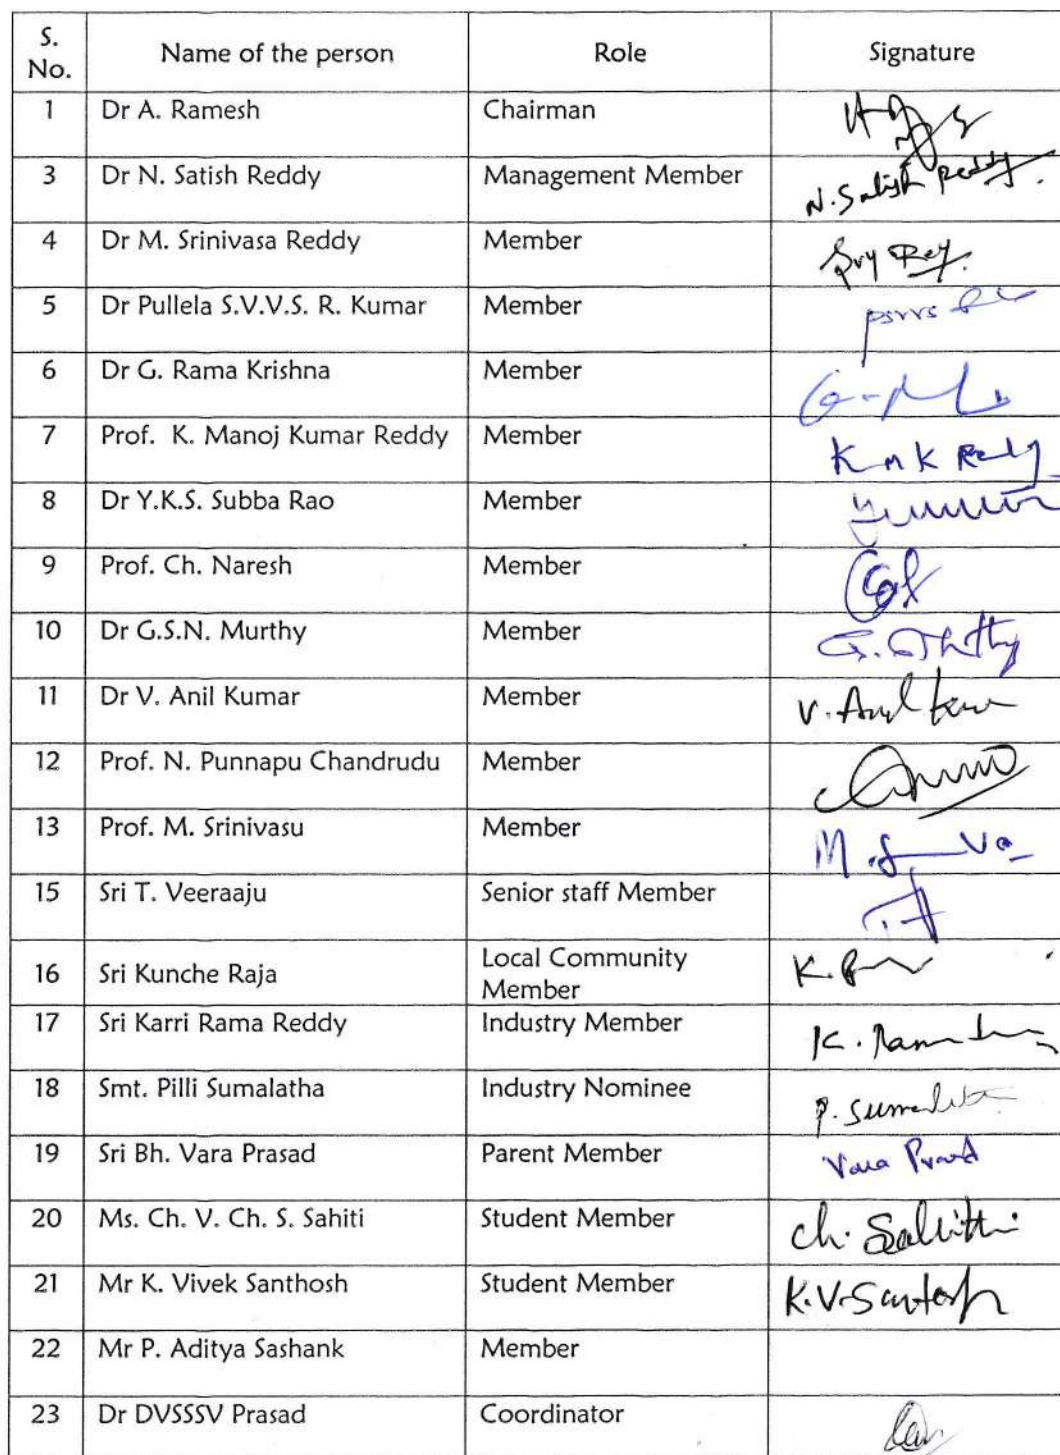 S. No. Name of the person Role Signature
1 Dr A. Ramesh Chairman
3 Dr N. Satish Reddy Management Member N. Satish Reddy
4 Dr M. Srinivasa Reddy Member
5 Dr Pullela S.V.V.S. R. Kumar Member psvvs
6 Dr G. Rama Krishna Member
7 Prof. K. Manoj Kumar Reddy Member K M K Reddy
8 Dr Y.K.S. Subba Rao Member
9 Prof. Ch. Naresh Member
10 Dr G.S.N. Murthy Member
11 Dr V. Anil Kumar Member V. Anil Kumar
12 Prof. N. Punnapu Chandrudu Member
13 Prof. M. Srinivasu Member
15 Sri T. Veeraaju Senior staff Member
16 Sri Kunche Raja Local Community
Member
17 Sri Karri Rama Reddy Industry Member
18 Smt. Pilli Sumalatha Industry Nominee P. Sumalatha
19 Sri Bh. Vara Prasad Parent Member Vara Prasad
20 Ms. Ch. V. Ch. S. Sahiti Student Member Ch. Sahithi
21 Mr K. Vivek Santhosh Student Member K.V. Santosh
22 Mr P. Aditya Sashank Member
23 Dr DVSSSV Prasad Coordinator